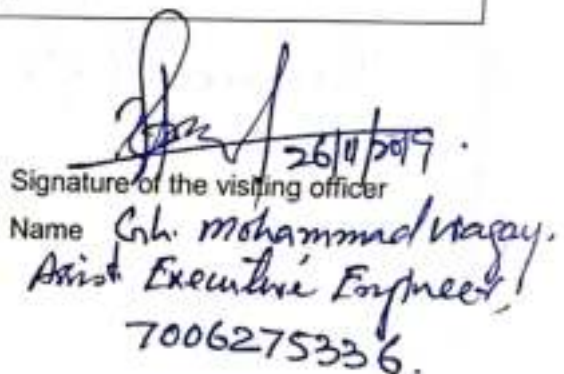 26/11/2019.
Signature of the visiting officer
Name Gh. Mohammad
Assist Executive Engineer
7006275336.